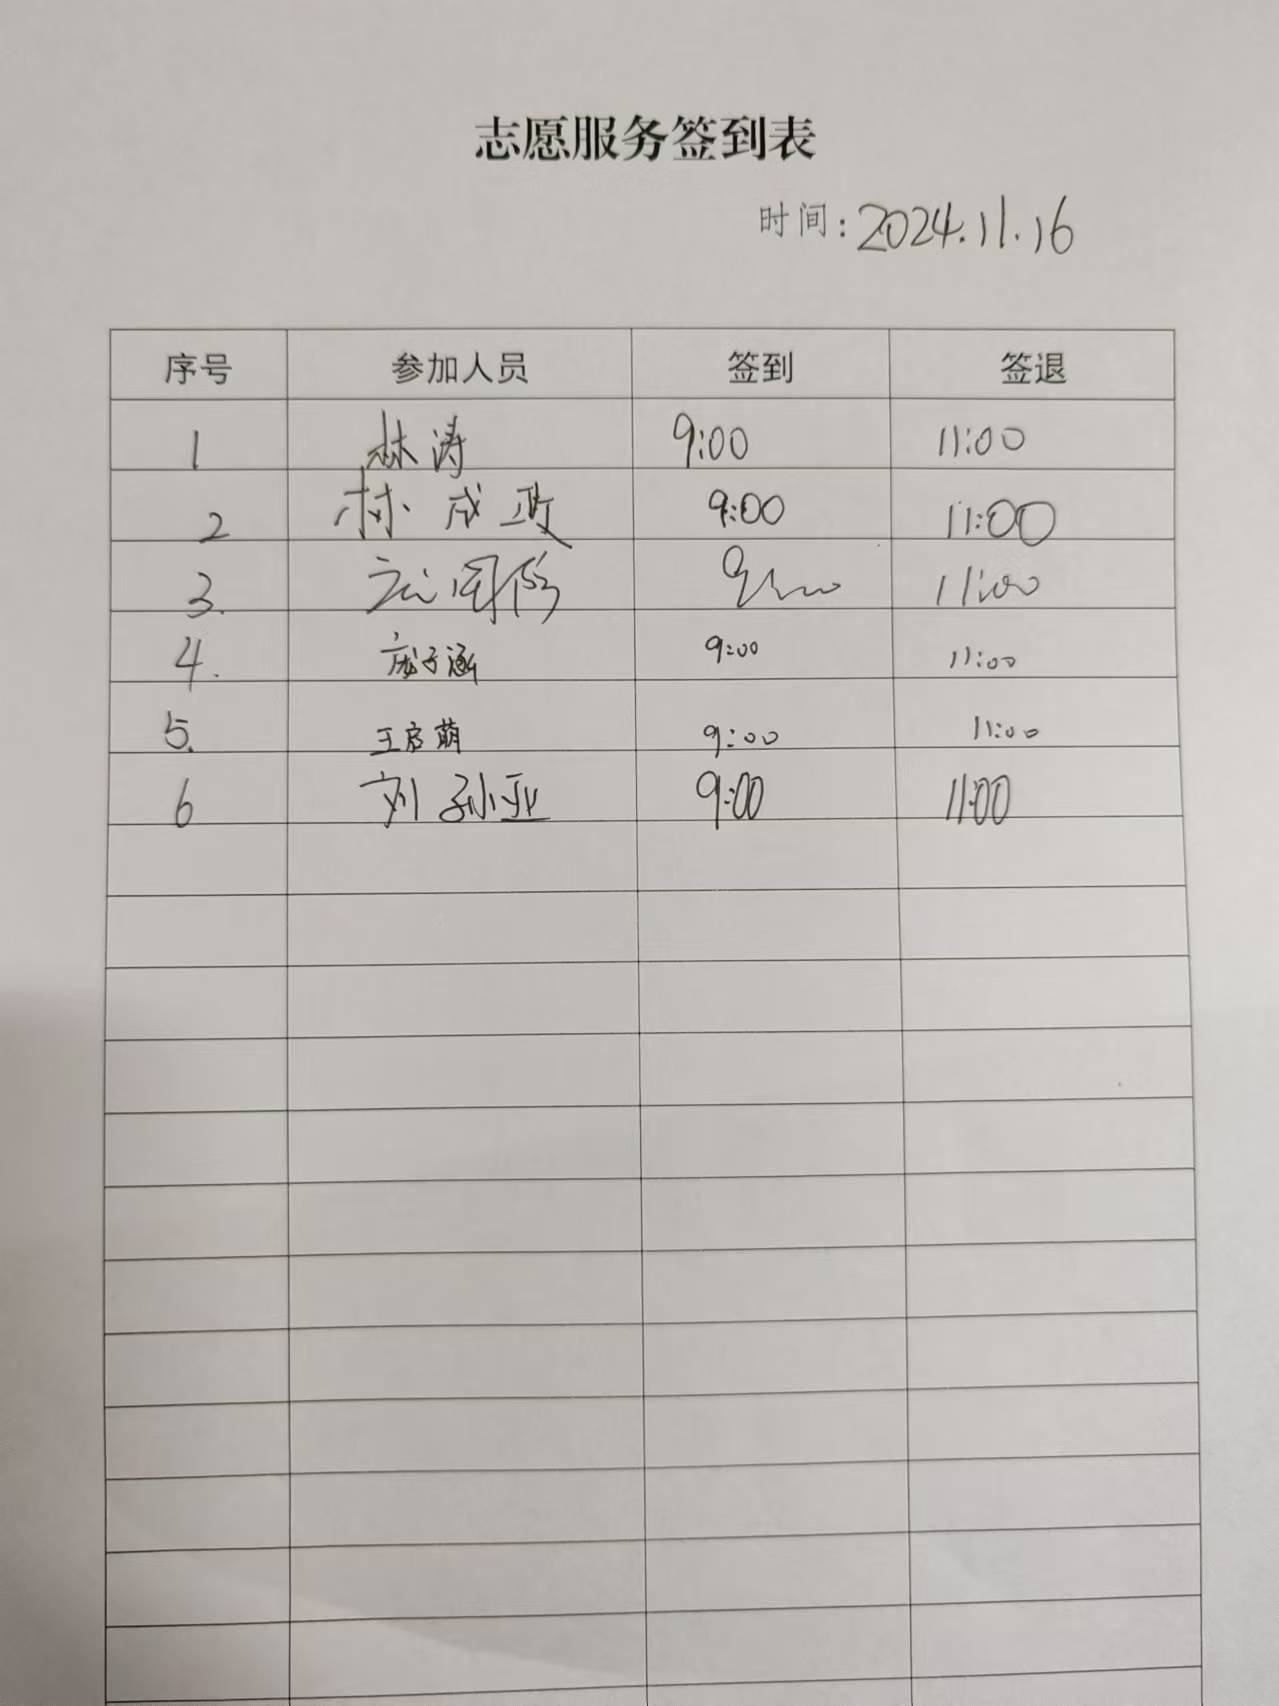 志愿服务签到表
时间：2024.11.16
序号 参加人员 签到 签退
1 林涛 9:00 11:00
2 林成政 9:00 11:00
3. 9:00 11:00
4. 庞子涵 9:00 11:00
5. 王启萌 9:00 11:00
6 刘孙亚 9:00 11:00